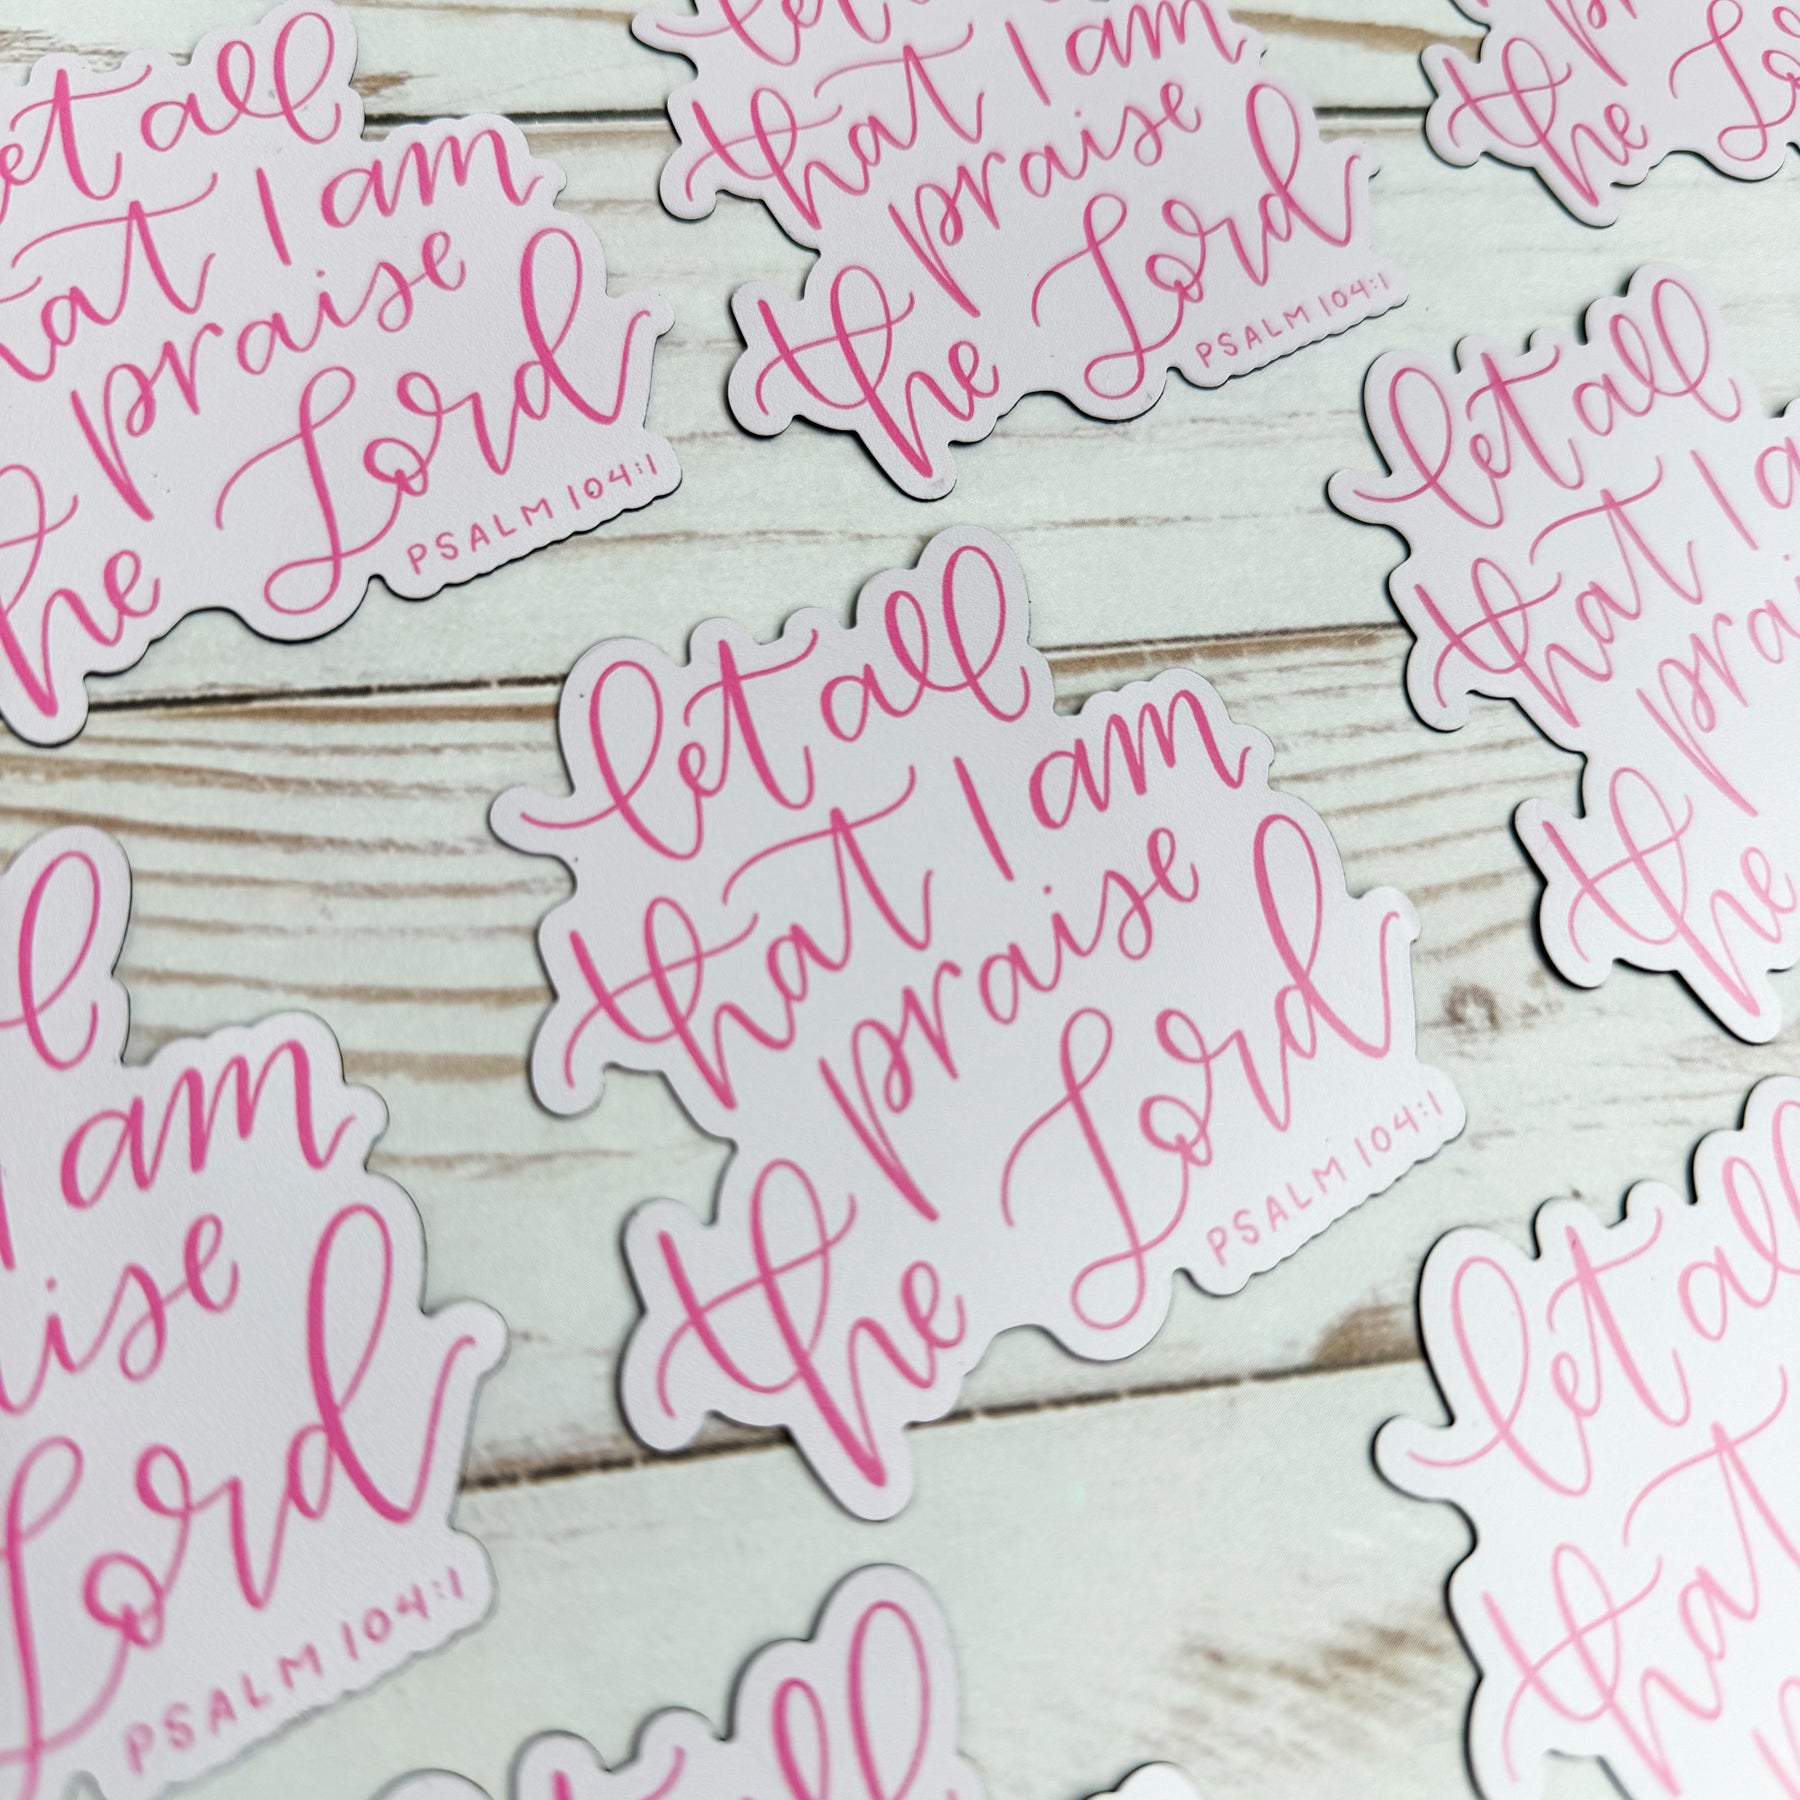 et all
that I am
praise
the Lord
PSALM 104:1
let
that I am
praise
the Lord
PSALM 104:1
the Lo
let all
that I a
prai
the
let all
that I am
praise
the Lord
PSALM 104:1
l
I am
aise
Lord
PSALM 104:1
let all
that
all